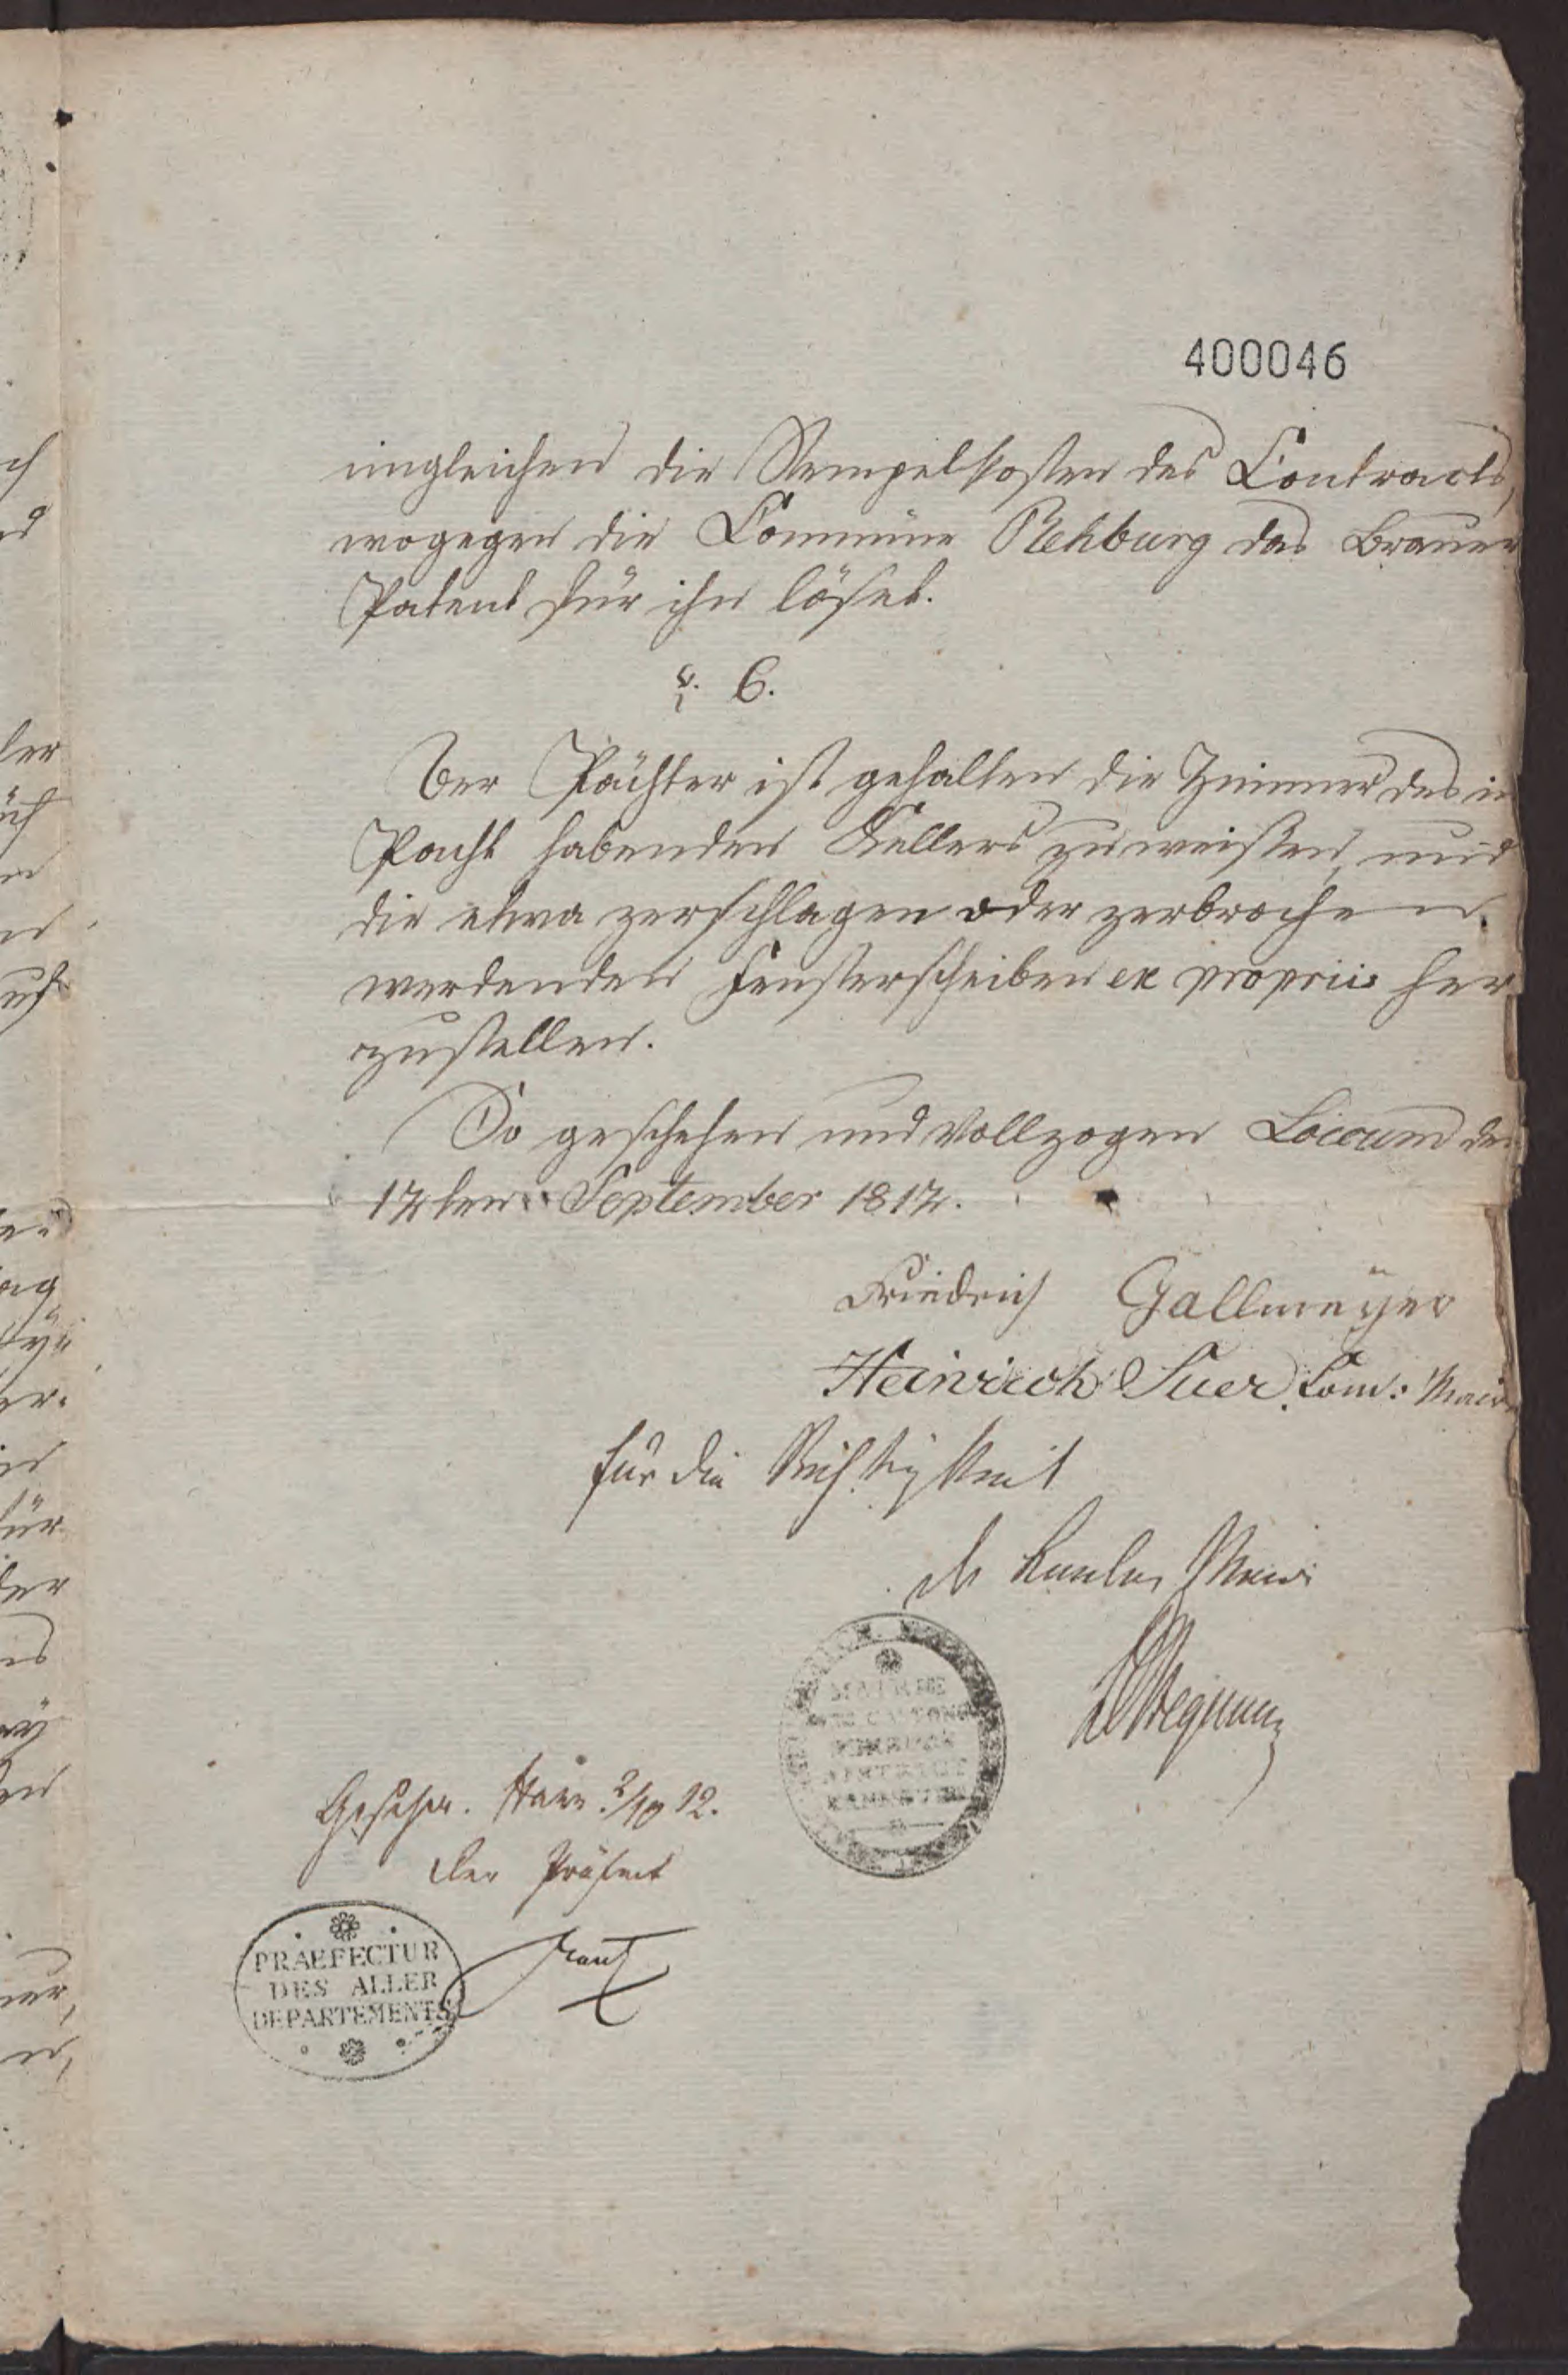 400046
imgleichen die Stempelkosten des Contracts,
wogegen die Commüne Rehburg das Brauer
Patent für ihn löset.
§. 6.
Der Pächter ist gehalten die Zimmer des in
Pacht habenden Kellers zu weißen, und
die etwa zerschlagen oder zerbrochen
werdenden Fensterscheiben ex propriis her
zustellen.
So geschehen und vollzogen Loccum den
12ten September 1812.
Friedrich Gallmeÿer
Heinrich Suer. Com: Maire
für die Richtigkeit
der Canton Maire
MAIRIE
DES CANTONS
DISTRICT
HANNOVER
Gesehen. Hann. 2/10 12.
Der Präfect
PRAEFECTUR
DES ALLER
DEPARTEMENTS